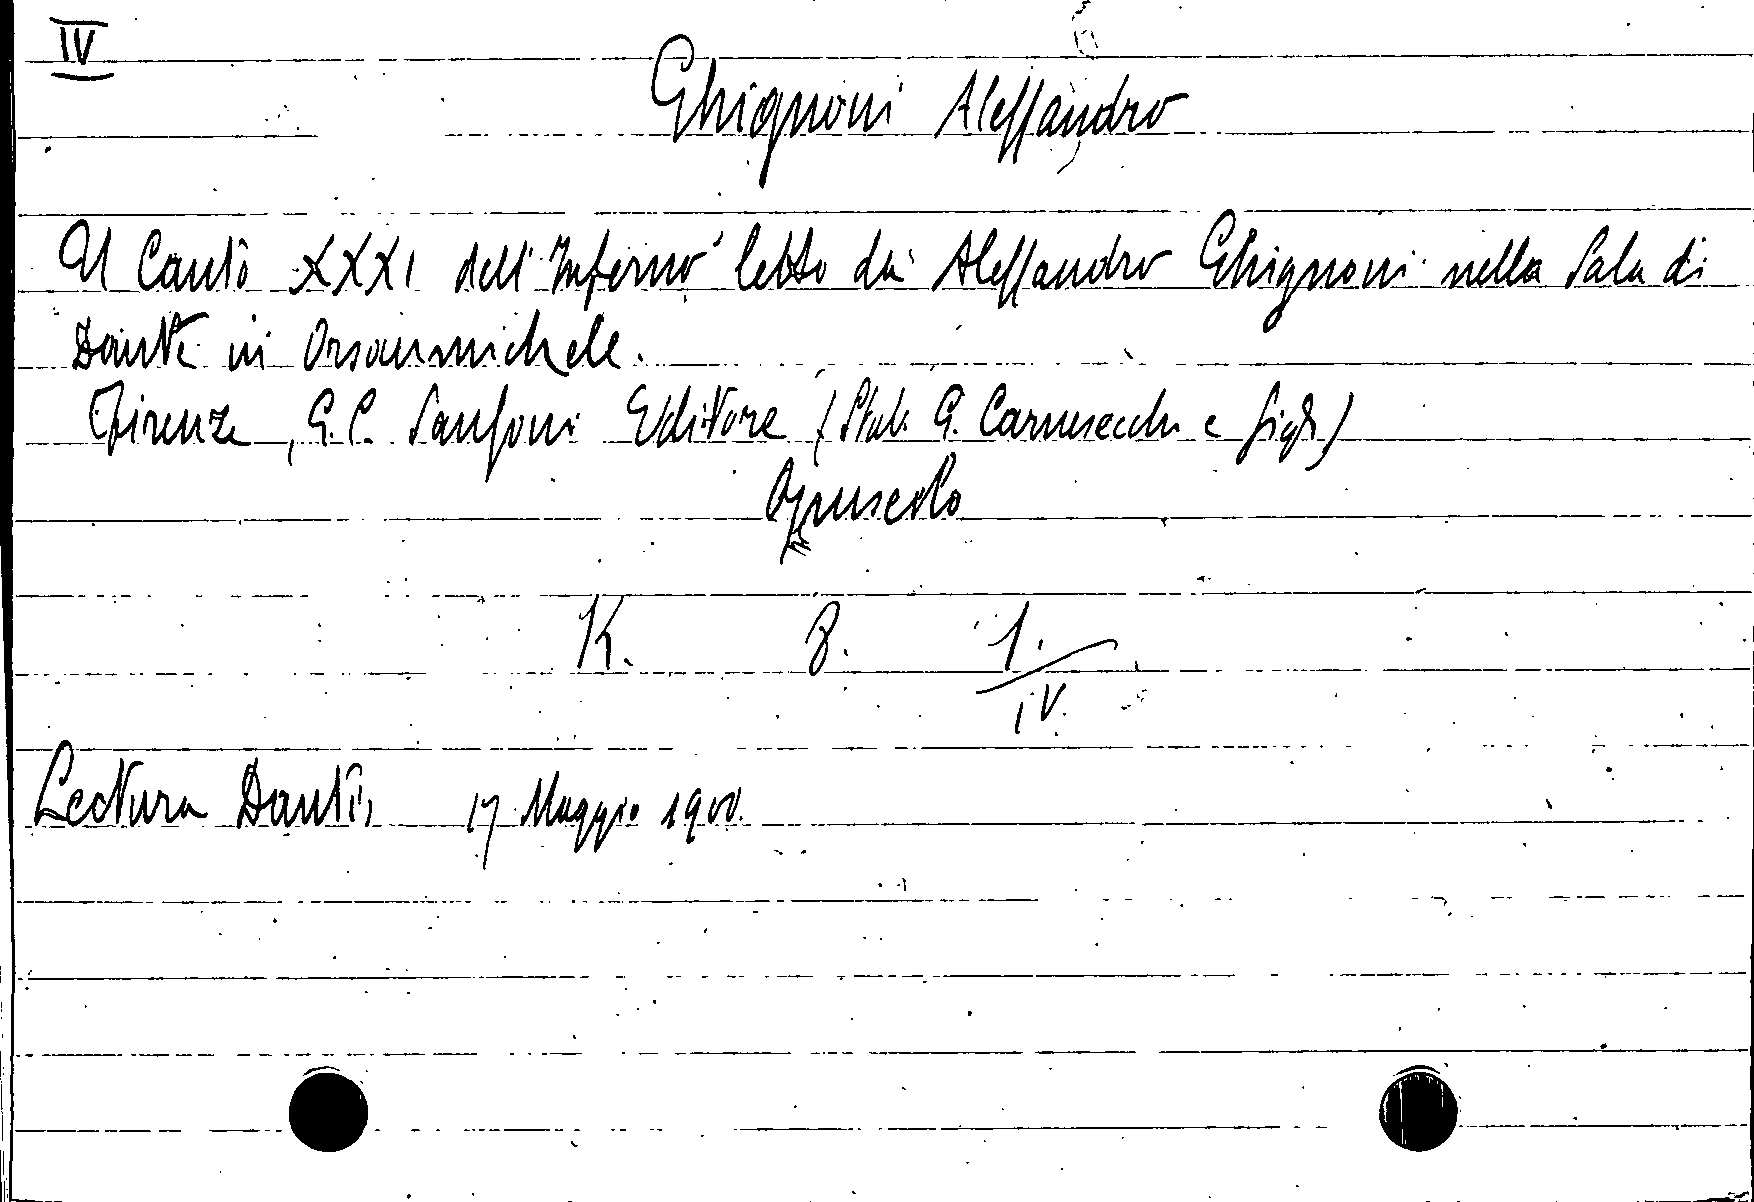 IV
Ghignoni Alessandro
Il Canto XXXI dell'Inferno letto da Alessandro Ghignoni nella Sala di
Dante in Orsanmichele.
Firenze, G. C. Sansoni Editore (Stab. G. Carnesecchi e figli)
Opuscolo
K. 8. 1.
IV.
Lectura Dantis 17 Maggio 1900.